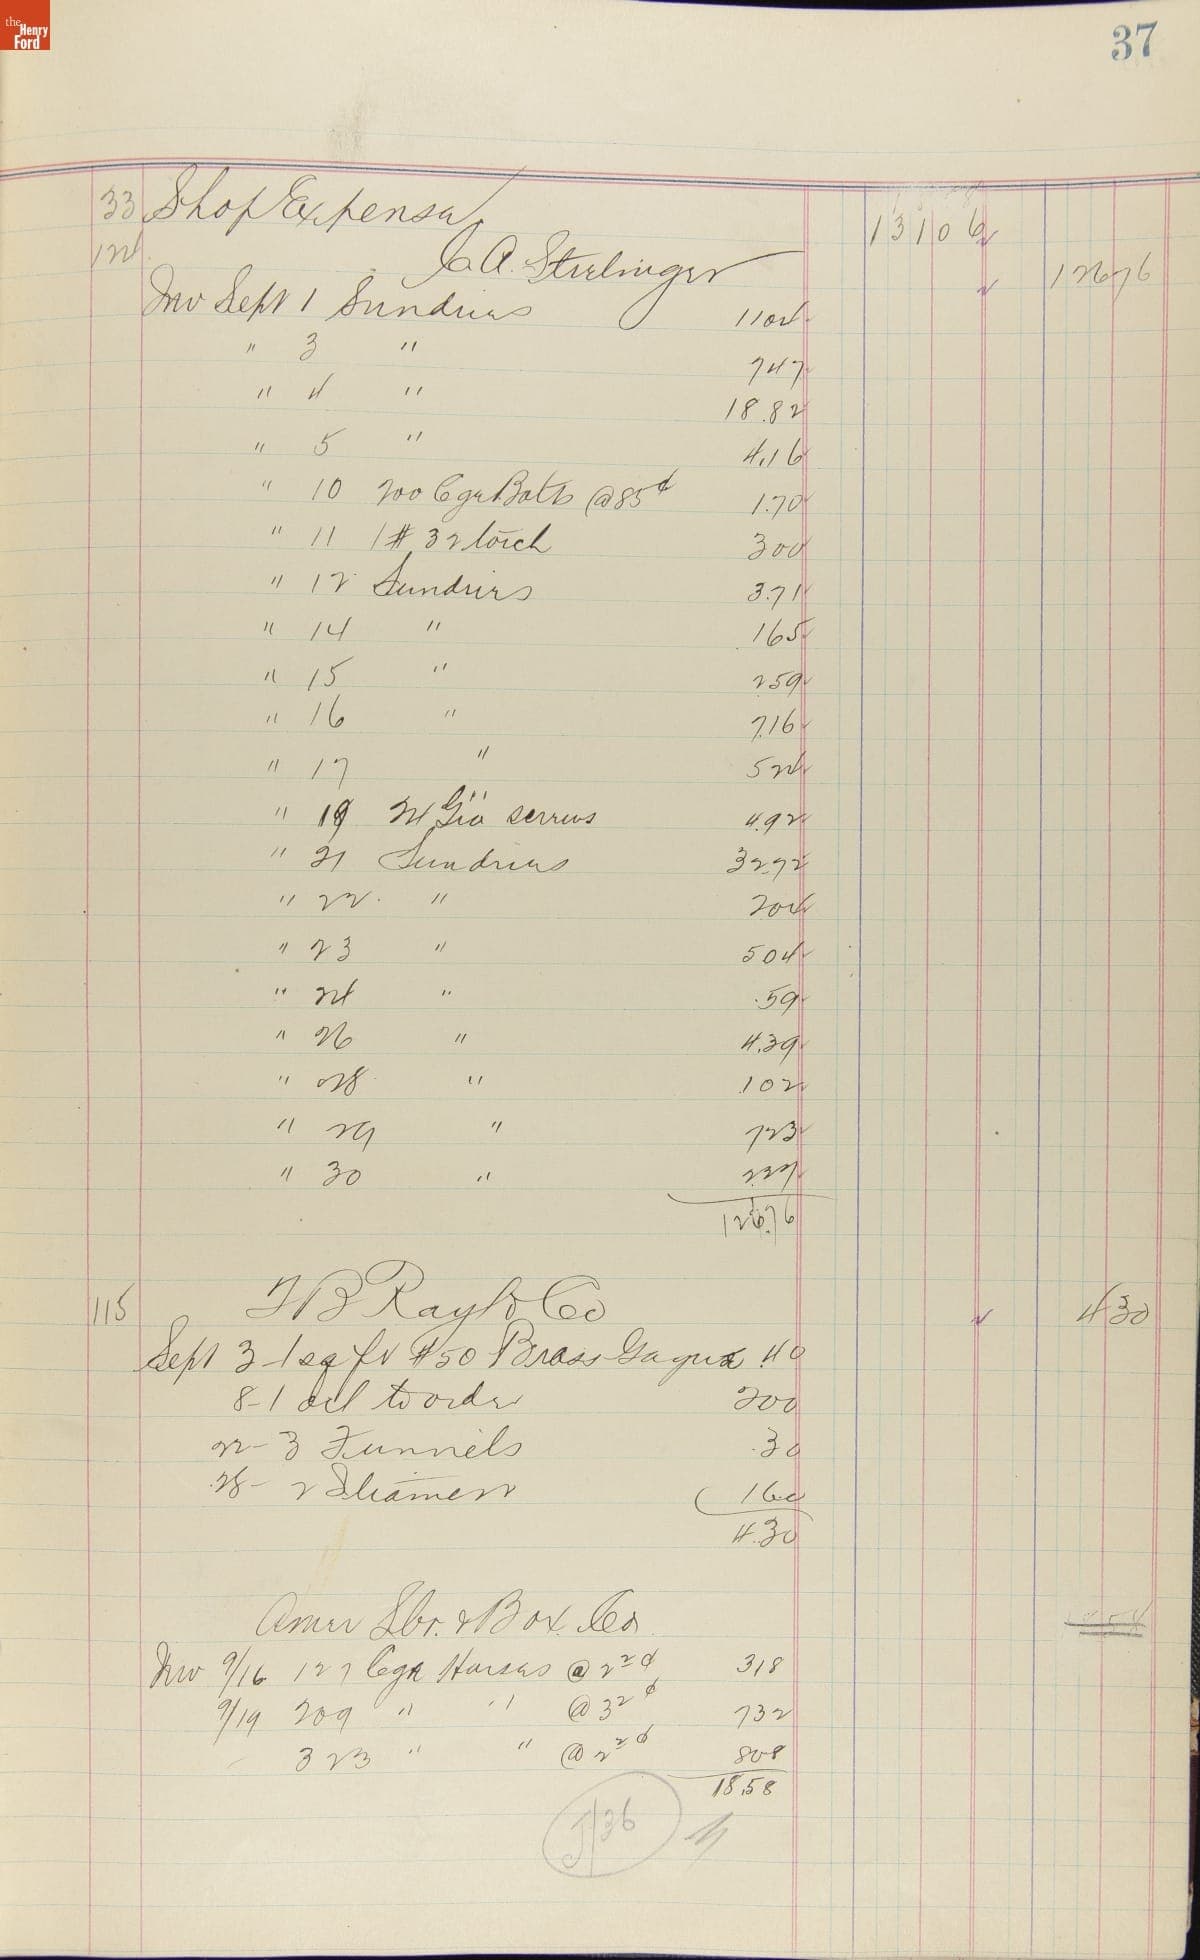 the Henry Ford
37
33 Shop Expense 13106
124 C. A. Strelinger 12676
Inv Sept 1 Sundries 1104
" 3 " 747
" 4 " 18.82
" 5 " 4.16
" 10 200 Cge Bolts @85¢ 1.70
" 11 1 # 32 torch 300
" 12 Sundries 3.71
" 14 " 165
" 15 " 259
" 16 " 7.16
" 17 " 524
" 19 24 Gro screws 4.92
" 21 Sundries 32.72
" 22 " 204
" 23 " 504
" 24 " .59
" 26 " 4.39
" 28 " 102
" 29 " 723
" 30 "
126.76
115 T B Rayl & Co 430
Sept 3 - 1 sq ft #50 Brass Gague .40
8 - 1 to order 200
22 - 3 Funnels .30
28 - 2 160
4.30
Amer Lbr. & Box. Co.
Inv 9/16 127 Cge @ 2 2/0 ¢ 318
9/19 209 " " @ 3 2/0 ¢ 732
323 " " @ 2 2/0 ¢ 808
18.58
J/36